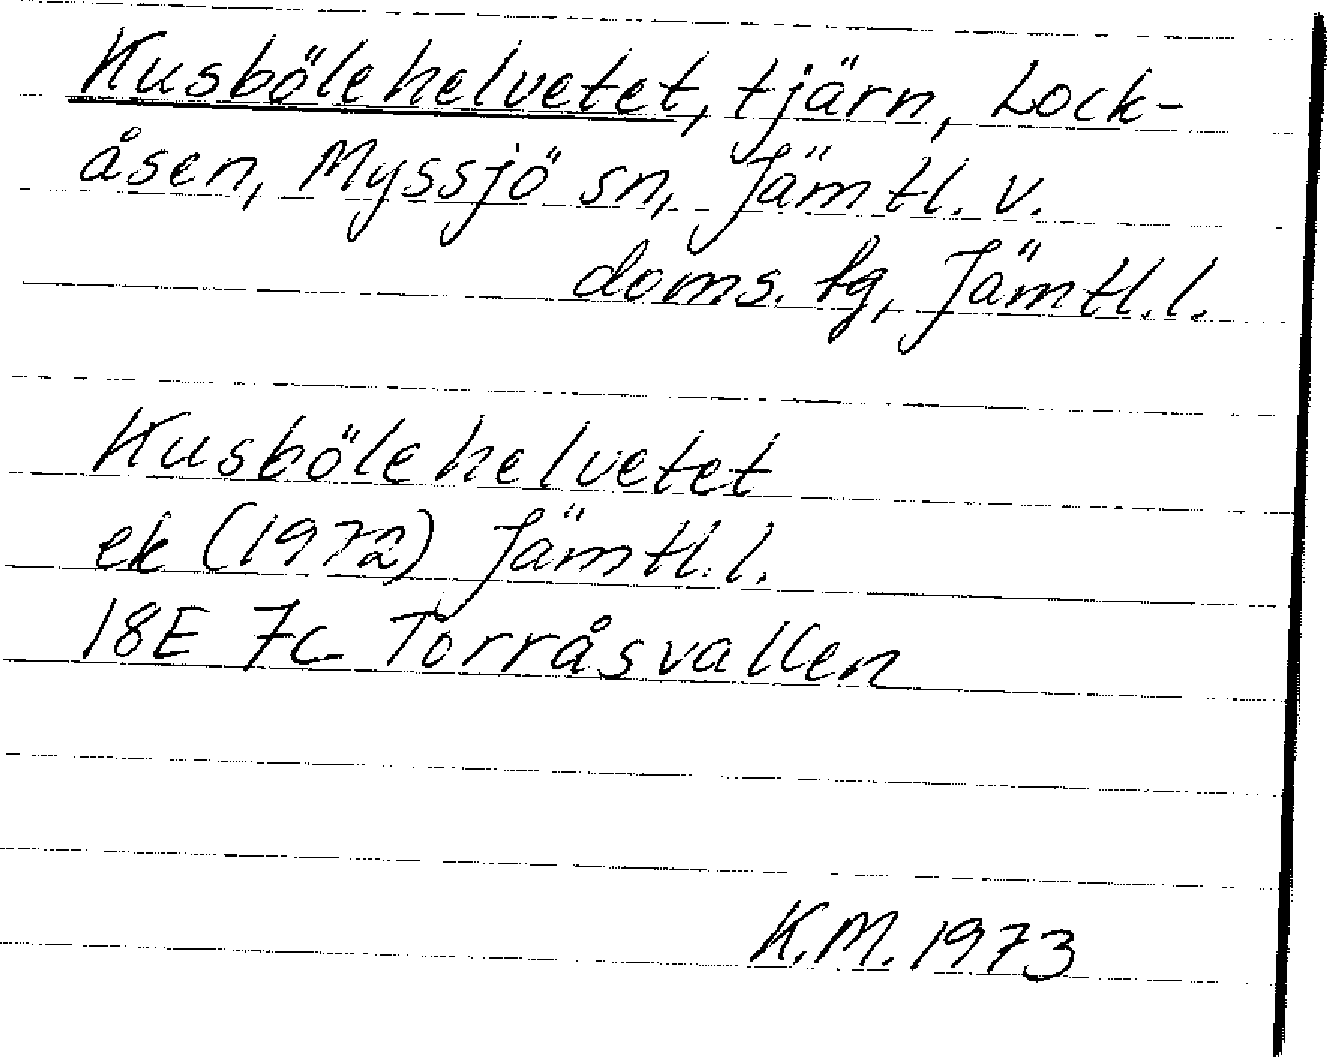 Kusbölehelvetet, tjärn, Lock-
åsen, Myssjö sn, Jämtl. v.
doms. tg, Jämtl. l.
Kusbölehelvetet
ek (1972) Jämtl. l.
18E 7c Torråsvallen
K.M. 1973